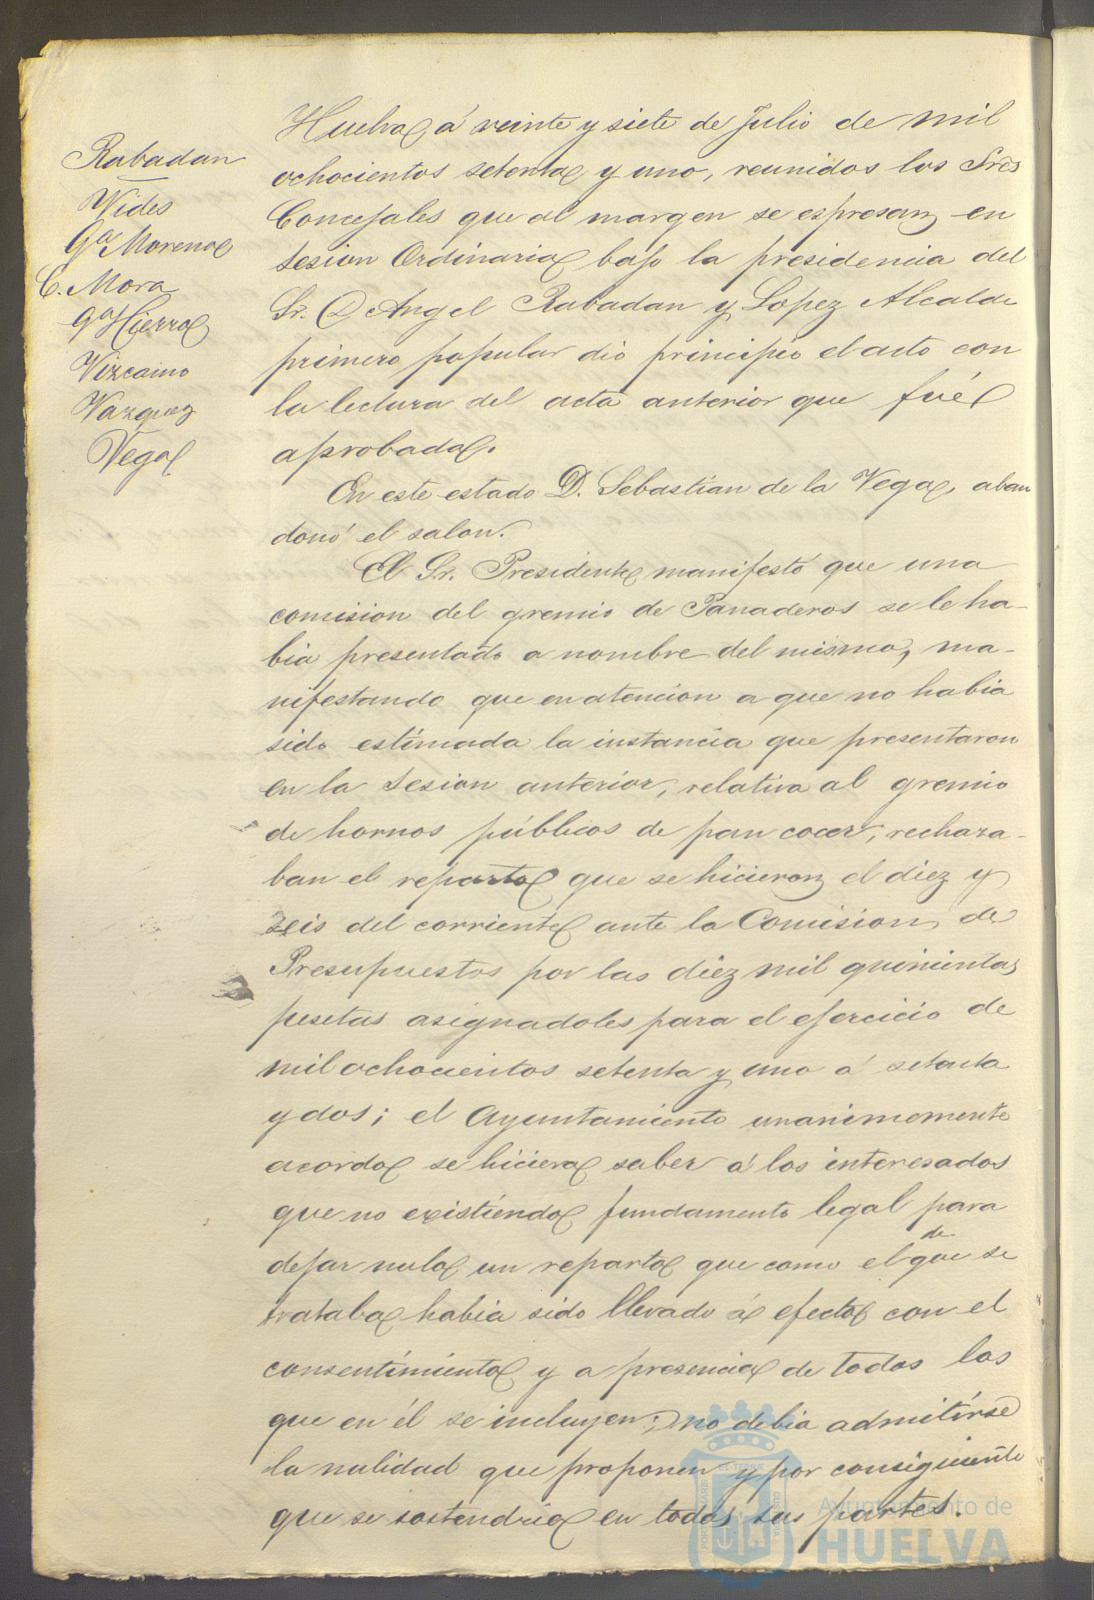 Rabadan
Vides
Gª Morena
C. Mora
Gª Hierro
Vizcaino
Vazquez
Vega
Huelva á veinte y siete de Julio de mil
ochocientos setenta y uno, reunidos los Sres
Concejales que al margen se espresan en
sesion Ordinaria bajo la presidencia del
Sr. D Angel Rabadan y Lopez Alcalde
primero popular dio principio el acto con
la lectura del acta anterior que fué
aprobada.
En este estado D. Sebastian de la Vega, aban
donó el salon.
El Sr. Presidente manifestó que una
comision del gremio de Panaderos se le ha-
bia presentado a nombre del mismo, ma-
nifestando que en atencion a que no habia
sido estimada la instancia que presentaron
en la sesion anterior, relativa al gremio
de hornos públicos de pan cocer, rechaza-
ban el reparto que se hicieron el diez y
seis del corriente ante la Comision de
Presupuestos por las diez mil quinientas
pesetas asignadoles para el ejercicio de
mil ochocientos setenta y uno á setenta
y dos; el Ayuntamiento unanimemente
acordo se hiciera saber á los interesados
que no existiendo fundamento legal para
dejar nulo un reparto que como el de que se
trataba habia sido llevado á efecto con el
consentimiento y a presencia de todos los
que en él se incluyen; no debia admitirse
la nulidad que proponen y por consiguiente
que se sostendria en todas sus partes.
Ayuntamiento de
HUELVA